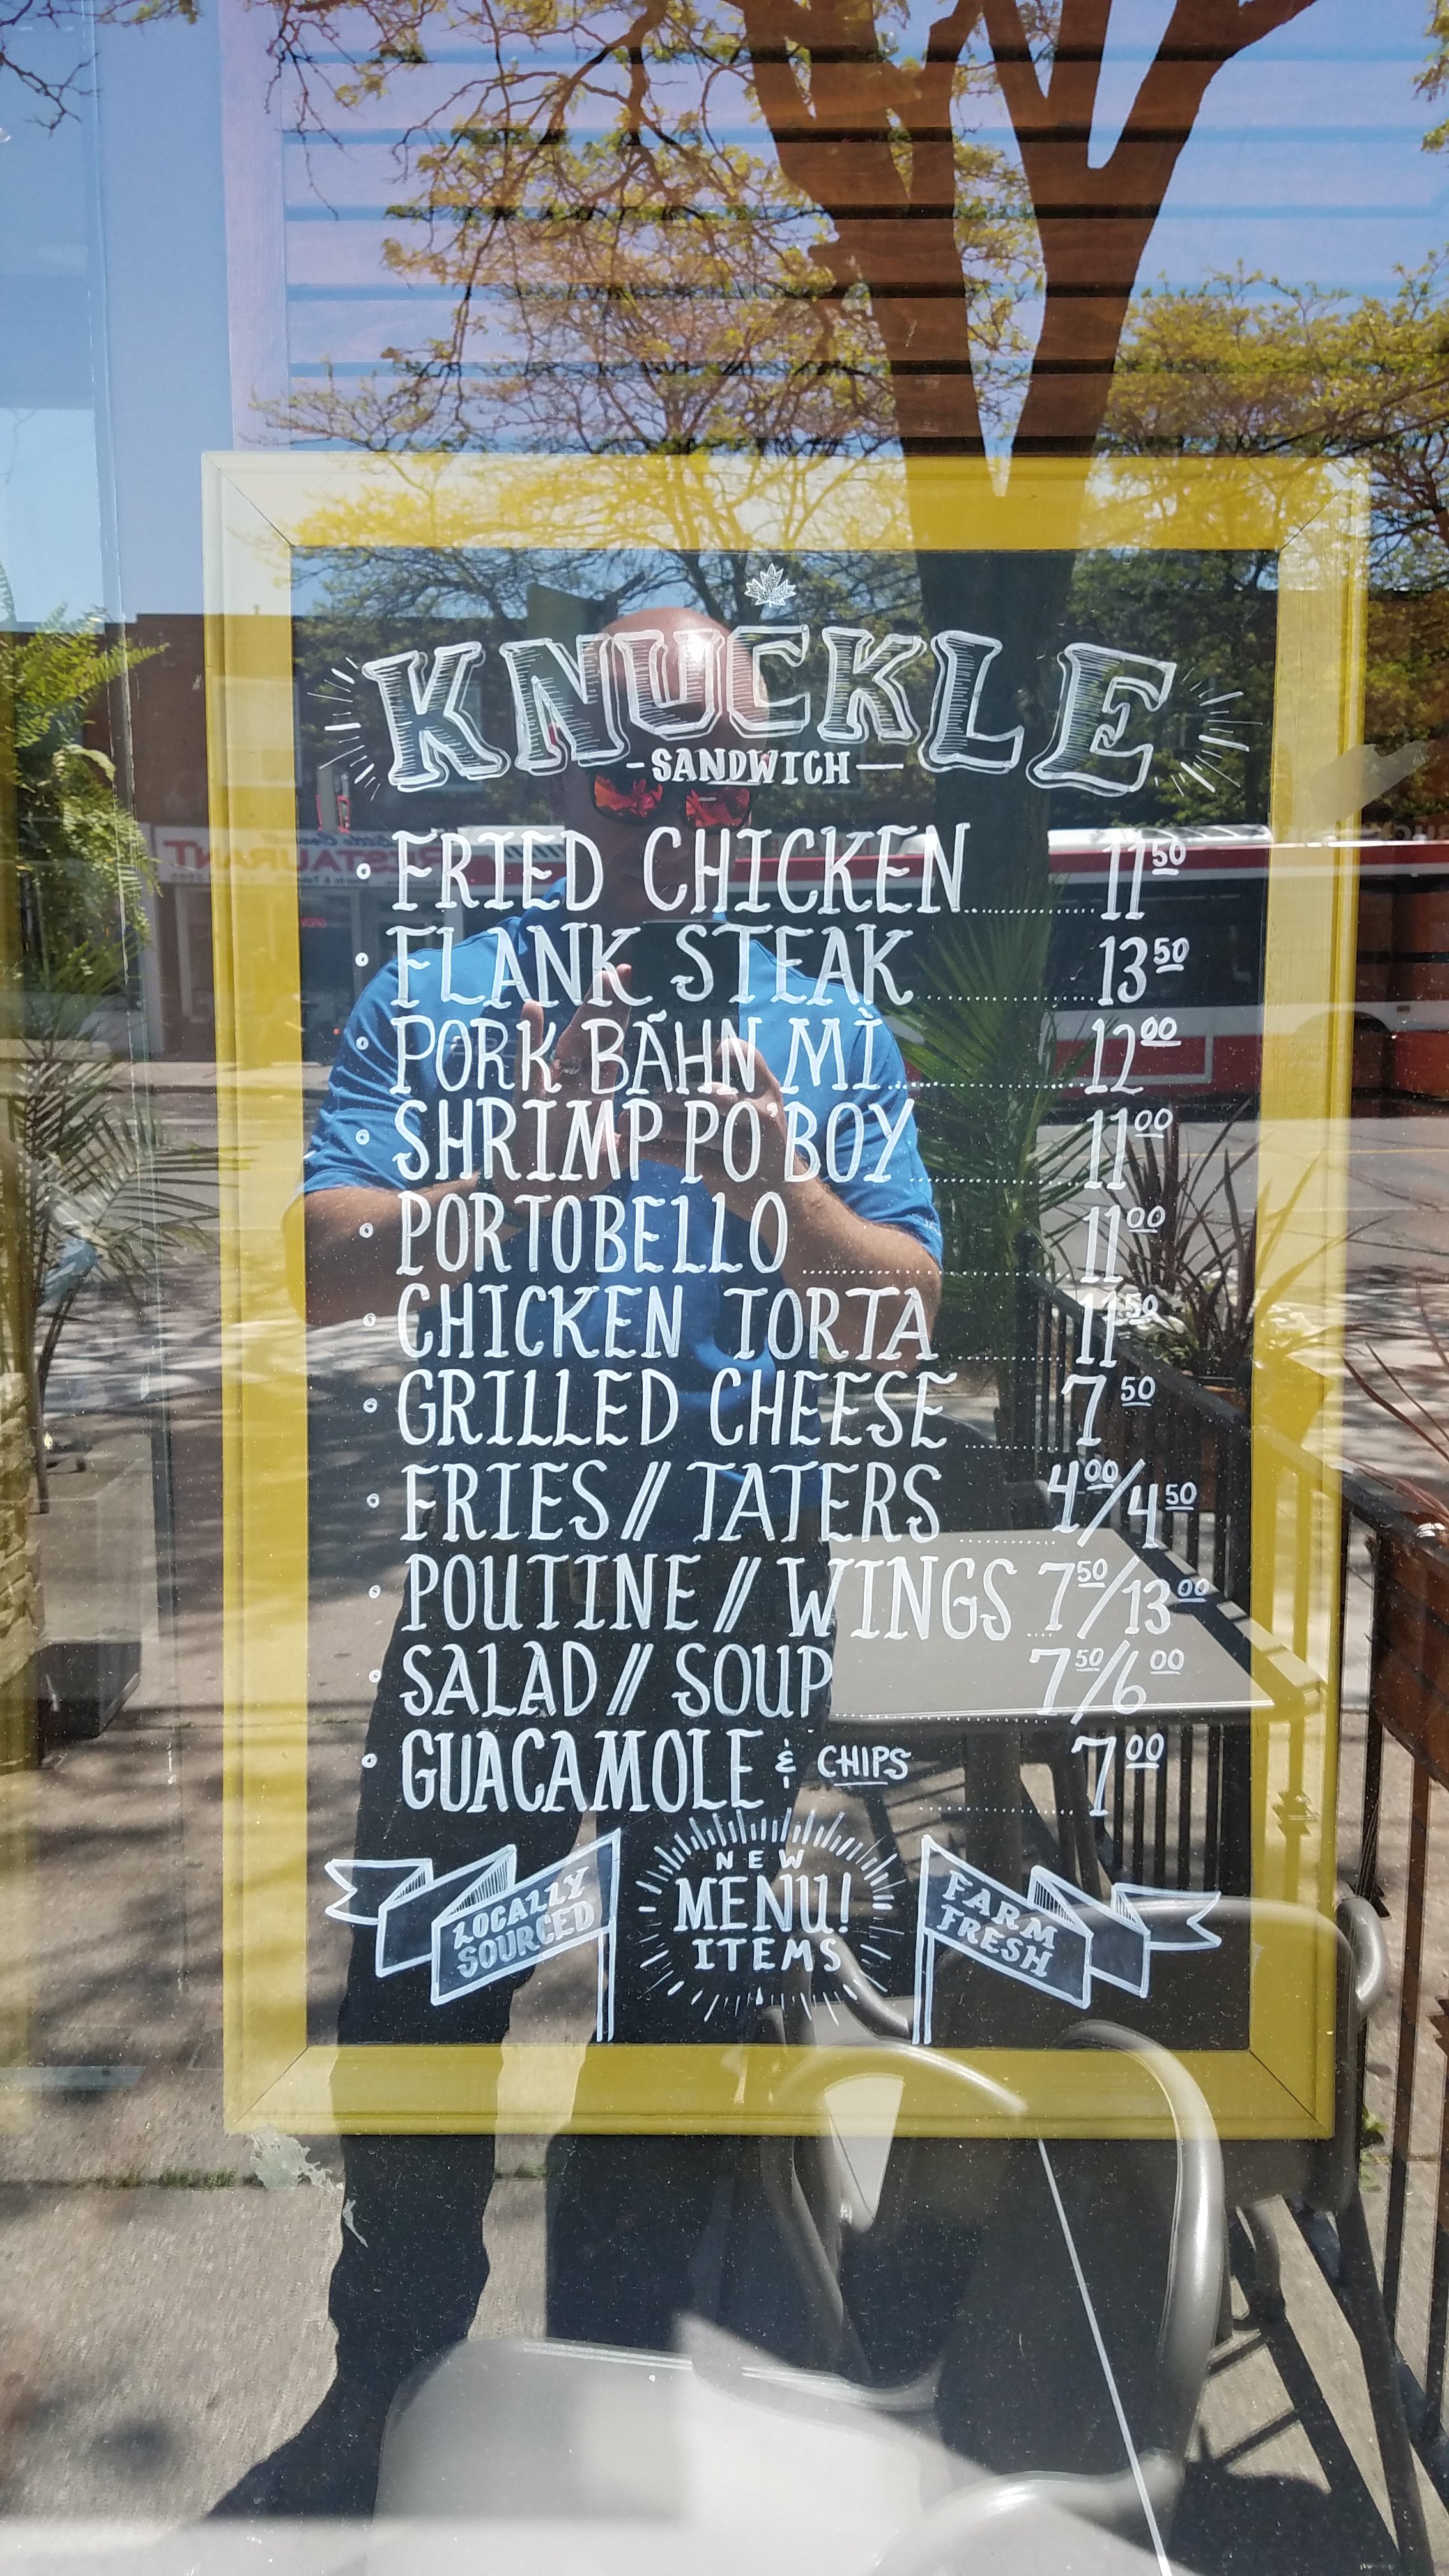 KNUCKLE
-SANDWICH-
◦ FRIED CHICKEN........ 11 50
◦ FLANK STEAK........ 13 50
◦ PORK BÃHN MÌ........ 12 00
◦ SHRIMP PO'BOY........ 11 00
◦ PORTOBELLO........ 11 00
◦ CHICKEN TORTA........ 11 50
◦ GRILLED CHEESE........ 7 50
◦ FRIES // TATERS........ 4 00/4 50
◦ POUTINE // WINGS... 7 50/13 00
◦ SALAD // SOUP........ 7 50/6 00
◦ GUACAMOLE & CHIPS........ 7 00
LOCALLY
SOURCED
NEW
MENU!
ITEMS
FARM
FRESH
RESTAURANT